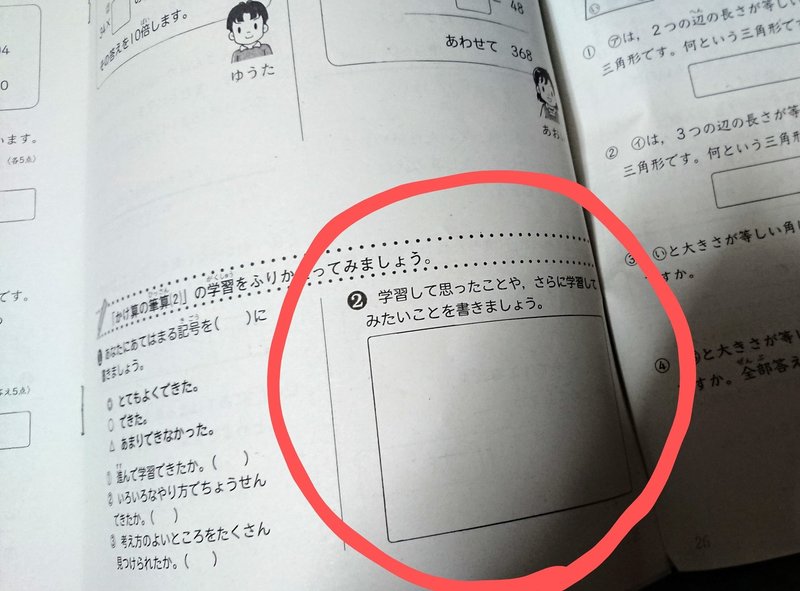 34×
その答えを10倍します。
ゆうた
48
あわせて 368
あお
94
0
います。
(各5点)
です。
え5点)
「かけ算の筆算(2)」の学習をふりか ってみましょう。
❶ あなたにあてはまる記号を( )に
書きましょう。
◎ とてもよくできた。
○ できた。
△ あまりできなかった。
① 進んで学習できたか。( )
② いろいろなやり方でちょうせん
できたか。( )
③ 考え方のよいところをたくさん
見つけられたか。( )
❷ 学習して思ったことや、さらに学習して
みたいことを書きましょう。
① ㋐は，２つの辺の長さが等しい
三角形です。何という三角形で
② ㋑は，３つの辺の長さが等
三角形です。何という三
③ ㋒と大きさが等しい角は
すか。
④ と大きさが等し
すか。全部答え
26